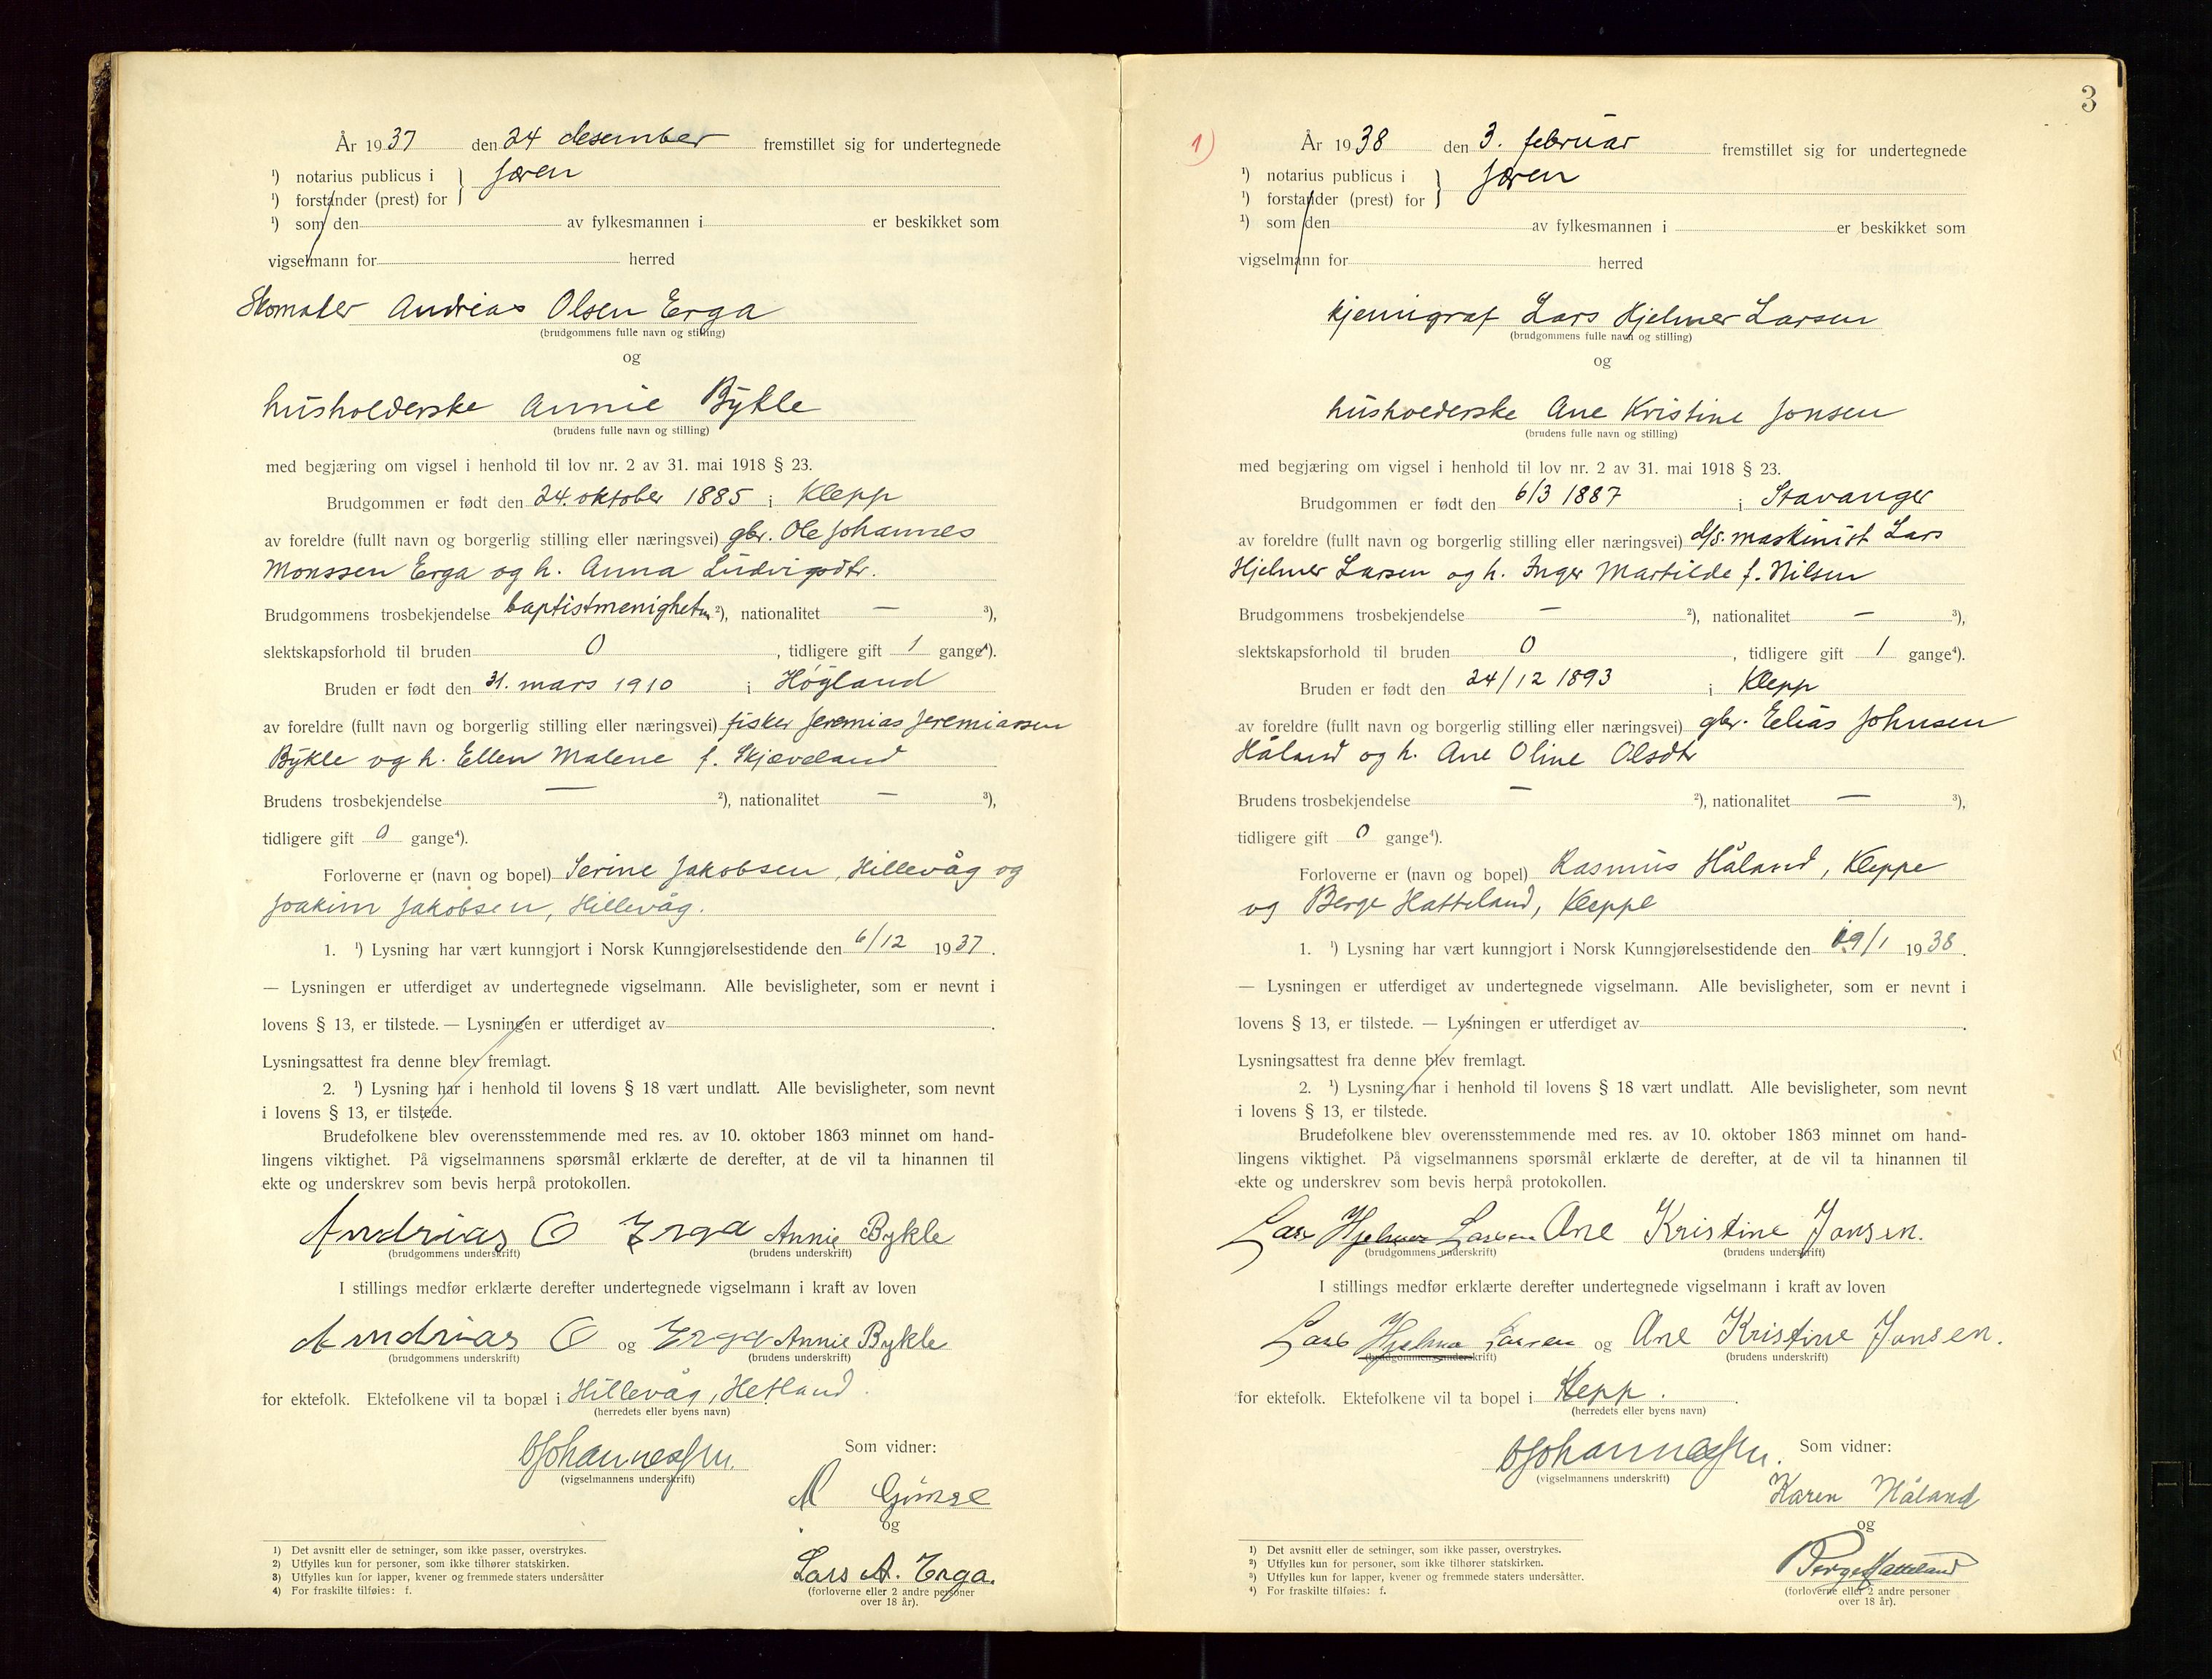 År 1937 den 24 desember fremstillet sig for undertegnede
¹) notarius publicus i } Jæren
¹) forstander (prest) for
¹) som den av fylkesmannen i er beskikket som
vigselmann for herred
Skomaker Andreas Olsen Erga
(brudgommens fulle navn og stilling)
og
husholderske Annie Bykle
(brudens fulle navn og stilling)
med begjæring om vigsel i henhold til lov nr. 2 av 31. mai 1918 § 23.
Brudgommen er født den 24. oktober 1885 i Klepp
av foreldre (fullt navn og borgerlig stilling eller næringsvei) gbr. Ole Johannes
Monssen Erga og h. Anna Ludvigsdtr.
Brudgommens trosbekjendelse baptistmenigheten ²), nationalitet — ³),
slektskapsforhold til bruden 0, tidligere gift 1 gange⁴).
Bruden er født den 31. mars 1910 i Høyland
av foreldre (fullt navn og borgerlig stilling eller næringsvei) fisker Jeremias Jeremiassen
Bykle og h. Ellen Malene f. Skjæveland
Brudens trosbekjendelse — ²), nationalitet — ³),
tidligere gift 0 gange⁴).
Forloverne er (navn og bopel) Serine Jakobsen, Hillevåg og
Joakim Jakobsen, Hillevåg.
1. ¹) Lysning har vært kunngjort i Norsk Kunngjørelsestidende den 6/12 1937.
— Lysningen er utferdiget av undertegnede vigselmann. Alle bevisligheter, som er nevnt i
lovens § 13, er tilstede. — Lysningen er utferdiget av .
Lysningsattest fra denne blev fremlagt.
2. ¹) Lysning har i henhold til lovens § 18 vært undlatt. Alle bevisligheter, som nevnt
i lovens § 13, er tilstede.
Brudefolkene blev overensstemmende med res. av 10. oktober 1863 minnet om hand-
lingens viktighet. På vigselmannens spørsmål erklærte de derefter, at de vil ta hinannen til
ekte og underskrev som bevis herpå protokollen.
Andrias O Erga Annie Bykle
(brudgommens underskrift) (brudens underskrift)
I stillings medfør erklærte derefter undertegnede vigselmann i kraft av loven
Andrias O og Erga Annie Bykle
(brudgommens underskrift) (brudens underskrift)
for ektefolk. Ektefolkene vil ta bopæl i Hillevåg, Hetland.
(herredets eller byens navn)
Som vidner:
(vigselmannens underskrift)
og
Lars A. Erga.
(forloverne eller 2 andre personer
over 18 år).
1) Det avsnitt eller de setninger, som ikke passer, overstrykes.
2) Utfylles kun for personer, som ikke tilhører statskirken.
3) Utfylles kun for lapper, kvener og fremmede staters undersåtter
4) For fraskilte tilføies: f.
3
1)
År 1938 den 3. februar fremstillet sig for undertegnede
¹) notarius publicus i } Jæren
¹) forstander (prest) for
¹) som den av fylkesmannen i er beskikket som
vigselmann for herred
kjemigraf Lars Hjelmer Larsen
(brudgommens fulle navn og stilling)
og
husholderske Ane Kristine Jonsen
(brudens fulle navn og stilling)
med begjæring om vigsel i henhold til lov nr. 2 av 31. mai 1918 § 23.
Brudgommen er født den 6/3 1887 i Stavanger
av foreldre (fullt navn og borgerlig stilling eller næringsvei) d/s. maskinist Lars
Hjelmer Larsen og h. Inger Martilde f. Nilsen
Brudgommens trosbekjendelse — ²), nationalitet — ³),
slektskapsforhold til bruden 0, tidligere gift 1 gange⁴).
Bruden er født den 24/12 1893 i Klepp
av foreldre (fullt navn og borgerlig stilling eller næringsvei) gbr. Elias Johnsen
Håland og h. Ane Oline Olsdtr
Brudens trosbekjendelse — ²), nationalitet — ³),
tidligere gift 0 gange⁴).
Forloverne er (navn og bopel) Rasmus Håland, Kleppe
og Berge Hatteland, Kleppe
1. ¹) Lysning har vært kunngjort i Norsk Kunngjørelsestidende den 19/1 1938.
— Lysningen er utferdiget av undertegnede vigselmann. Alle bevisligheter, som er nevnt i
lovens § 13, er tilstede. — Lysningen er utferdiget av .
Lysningsattest fra denne blev fremlagt.
2. ¹) Lysning har i henhold til lovens § 18 vært undlatt. Alle bevisligheter, som nevnt
i lovens § 13, er tilstede.
Brudefolkene blev overensstemmende med res. av 10. oktober 1863 minnet om hand-
lingens viktighet. På vigselmannens spørsmål erklærte de derefter, at de vil ta hinannen til
ekte og underskrev som bevis herpå protokollen.
Lars Hjelmer Larsen Ane Kristine Jonsen.
(brudgommens underskrift) (brudens underskrift)
I stillings medfør erklærte derefter undertegnede vigselmann i kraft av loven
Lars Hjelmer Larsen og Ane Kristine Jonsen.
(brudgommens underskrift) (brudens underskrift)
for ektefolk. Ektefolkene vil ta bopel i Klepp.
(herredets eller byens navn)
Som vidner:
(vigselmannens underskrift)
Karen Håland
og
Berge Hatteland
(forloverne eller 2 andre personer
over 18 år).
1) Det avsnitt eller de setninger, som ikke passer, overstrykes.
2) Utfylles kun for personer, som ikke tilhører statskirken.
3) Utfylles kun for lapper, kvener og fremmede staters undersåtter.
4) For fraskilte tilføies: f.